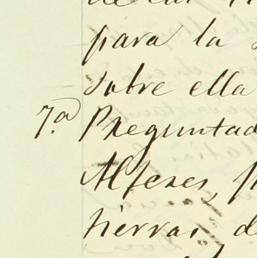 para la
sobre ella
7ª Preguntad
Alfexes, p
tierras d